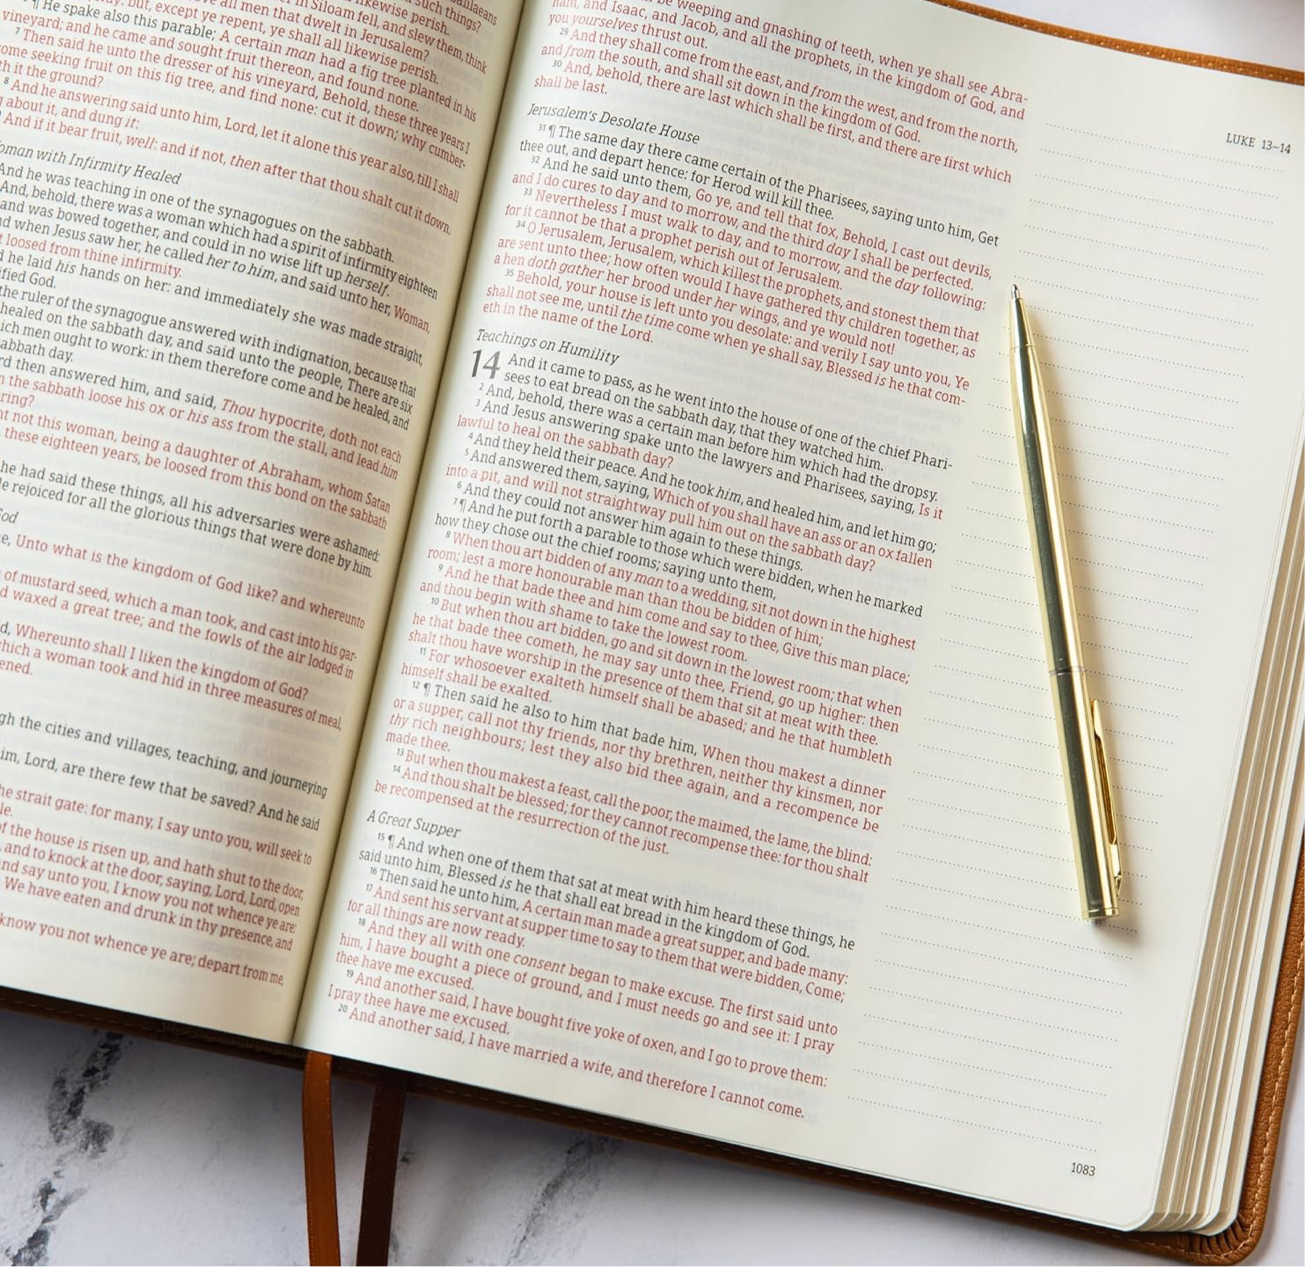 such things?
likewise perish.
in Siloam fell, and slew them, think
all men that dwelt in Jerusalem?
but, except ye repent, ye shall all likewise perish.
¶ He spake also this parable; A certain man had a fig tree planted in his
vineyard; and he came and sought fruit thereon, and found none.
7 Then said he unto the dresser of his vineyard, Behold, these three years I
ome seeking fruit on this fig tree, and find none: cut it down; why cumber-
th it the ground?
8 And he answering said unto him, Lord, let it alone this year also, till I shall
about it, and dung it:
And if it bear fruit, well: and if not, then after that thou shalt cut it down.
oman with Infirmity Healed
And he was teaching in one of the synagogues on the sabbath.
And, behold, there was a woman which had a spirit of infirmity eighteen
and was bowed together, and could in no wise lift up herself.
d when Jesus saw her, he called her to him, and said unto her, Woman,
loosed from thine infirmity.
d he laid his hands on her: and immediately she was made straight,
ified God.
the ruler of the synagogue answered with indignation, because that
healed on the sabbath day, and said unto the people, There are six
ich men ought to work: in them therefore come and be healed, and
abbath day.
rd then answered him, and said, Thou hypocrite, doth not each
n the sabbath loose his ox or his ass from the stall, and lead him
ring?
t not this woman, being a daughter of Abraham, whom Satan
these eighteen years, be loosed from this bond on the sabbath
he had said these things, all his adversaries were ashamed:
le rejoiced for all the glorious things that were done by him.
God
e, Unto what is the kingdom of God like? and whereunto
of mustard seed, which a man took, and cast into his gar-
d waxed a great tree; and the fowls of the air lodged in
d, Whereunto shall I liken the kingdom of God?
hich a woman took and hid in three measures of meal,
ened.
gh the cities and villages, teaching, and journeying
im, Lord, are there few that be saved? And he said
he strait gate: for many, I say unto you, will seek to
le.
f the house is risen up, and hath shut to the door,
and to knock at the door, saying, Lord, Lord, open
nd say unto you, I know you not whence ye are:
We have eaten and drunk in thy presence, and
know you not whence ye are; depart from me,
be weeping and gnashing of teeth, when ye shall see Abra-
ham, and Isaac, and Jacob, and all the prophets, in the kingdom of God, and
you yourselves thrust out.
29 And they shall come from the east, and from the west, and from the north,
and from the south, and shall sit down in the kingdom of God.
30 And, behold, there are last which shall be first, and there are first which
shall be last.
Jerusalem's Desolate House
31 ¶ The same day there came certain of the Pharisees, saying unto him, Get
thee out, and depart hence: for Herod will kill thee.
32 And he said unto them, Go ye, and tell that fox, Behold, I cast out devils,
and I do cures to day and to morrow, and the third day I shall be perfected.
33 Nevertheless I must walk to day, and to morrow, and the day following:
for it cannot be that a prophet perish out of Jerusalem.
34 O Jerusalem, Jerusalem, which killest the prophets, and stonest them that
are sent unto thee; how often would I have gathered thy children together, as
a hen doth gather her brood under her wings, and ye would not!
35 Behold, your house is left unto you desolate: and verily I say unto you, Ye
shall not see me, until the time come when ye shall say, Blessed is he that com-
eth in the name of the Lord.
Teachings on Humility
14 And it came to pass, as he went into the house of one of the chief Phari-
sees to eat bread on the sabbath day, that they watched him.
2 And, behold, there was a certain man before him which had the dropsy.
3 And Jesus answering spake unto the lawyers and Pharisees, saying, Is it
lawful to heal on the sabbath day?
4 And they held their peace. And he took him, and healed him, and let him go;
5 And answered them, saying, Which of you shall have an ass or an ox fallen
into a pit, and will not straightway pull him out on the sabbath day?
6 And they could not answer him again to these things.
7 ¶ And he put forth a parable to those which were bidden, when he marked
how they chose out the chief rooms; saying unto them,
8 When thou art bidden of any man to a wedding, sit not down in the highest
room; lest a more honourable man than thou be bidden of him;
9 And he that bade thee and him come and say to thee, Give this man place;
and thou begin with shame to take the lowest room.
10 But when thou art bidden, go and sit down in the lowest room; that when
he that bade thee cometh, he may say unto thee, Friend, go up higher: then
shalt thou have worship in the presence of them that sit at meat with thee.
11 For whosoever exalteth himself shall be abased; and he that humbleth
himself shall be exalted.
12 ¶ Then said he also to him that bade him, When thou makest a dinner
or a supper, call not thy friends, nor thy brethren, neither thy kinsmen, nor
thy rich neighbours; lest they also bid thee again, and a recompence be
made thee.
13 But when thou makest a feast, call the poor, the maimed, the lame, the blind:
14 And thou shalt be blessed; for they cannot recompense thee: for thou shalt
be recompensed at the resurrection of the just.
A Great Supper
15 ¶ And when one of them that sat at meat with him heard these things, he
said unto him, Blessed is he that shall eat bread in the kingdom of God.
16 Then said he unto him, A certain man made a great supper, and bade many:
17 And sent his servant at supper time to say to them that were bidden, Come;
for all things are now ready.
18 And they all with one consent began to make excuse. The first said unto
him, I have bought a piece of ground, and I must needs go and see it: I pray
thee have me excused.
19 And another said, I have bought five yoke of oxen, and I go to prove them:
I pray thee have me excused.
20 And another said, I have married a wife, and therefore I cannot come.
LUKE 13–14
1083